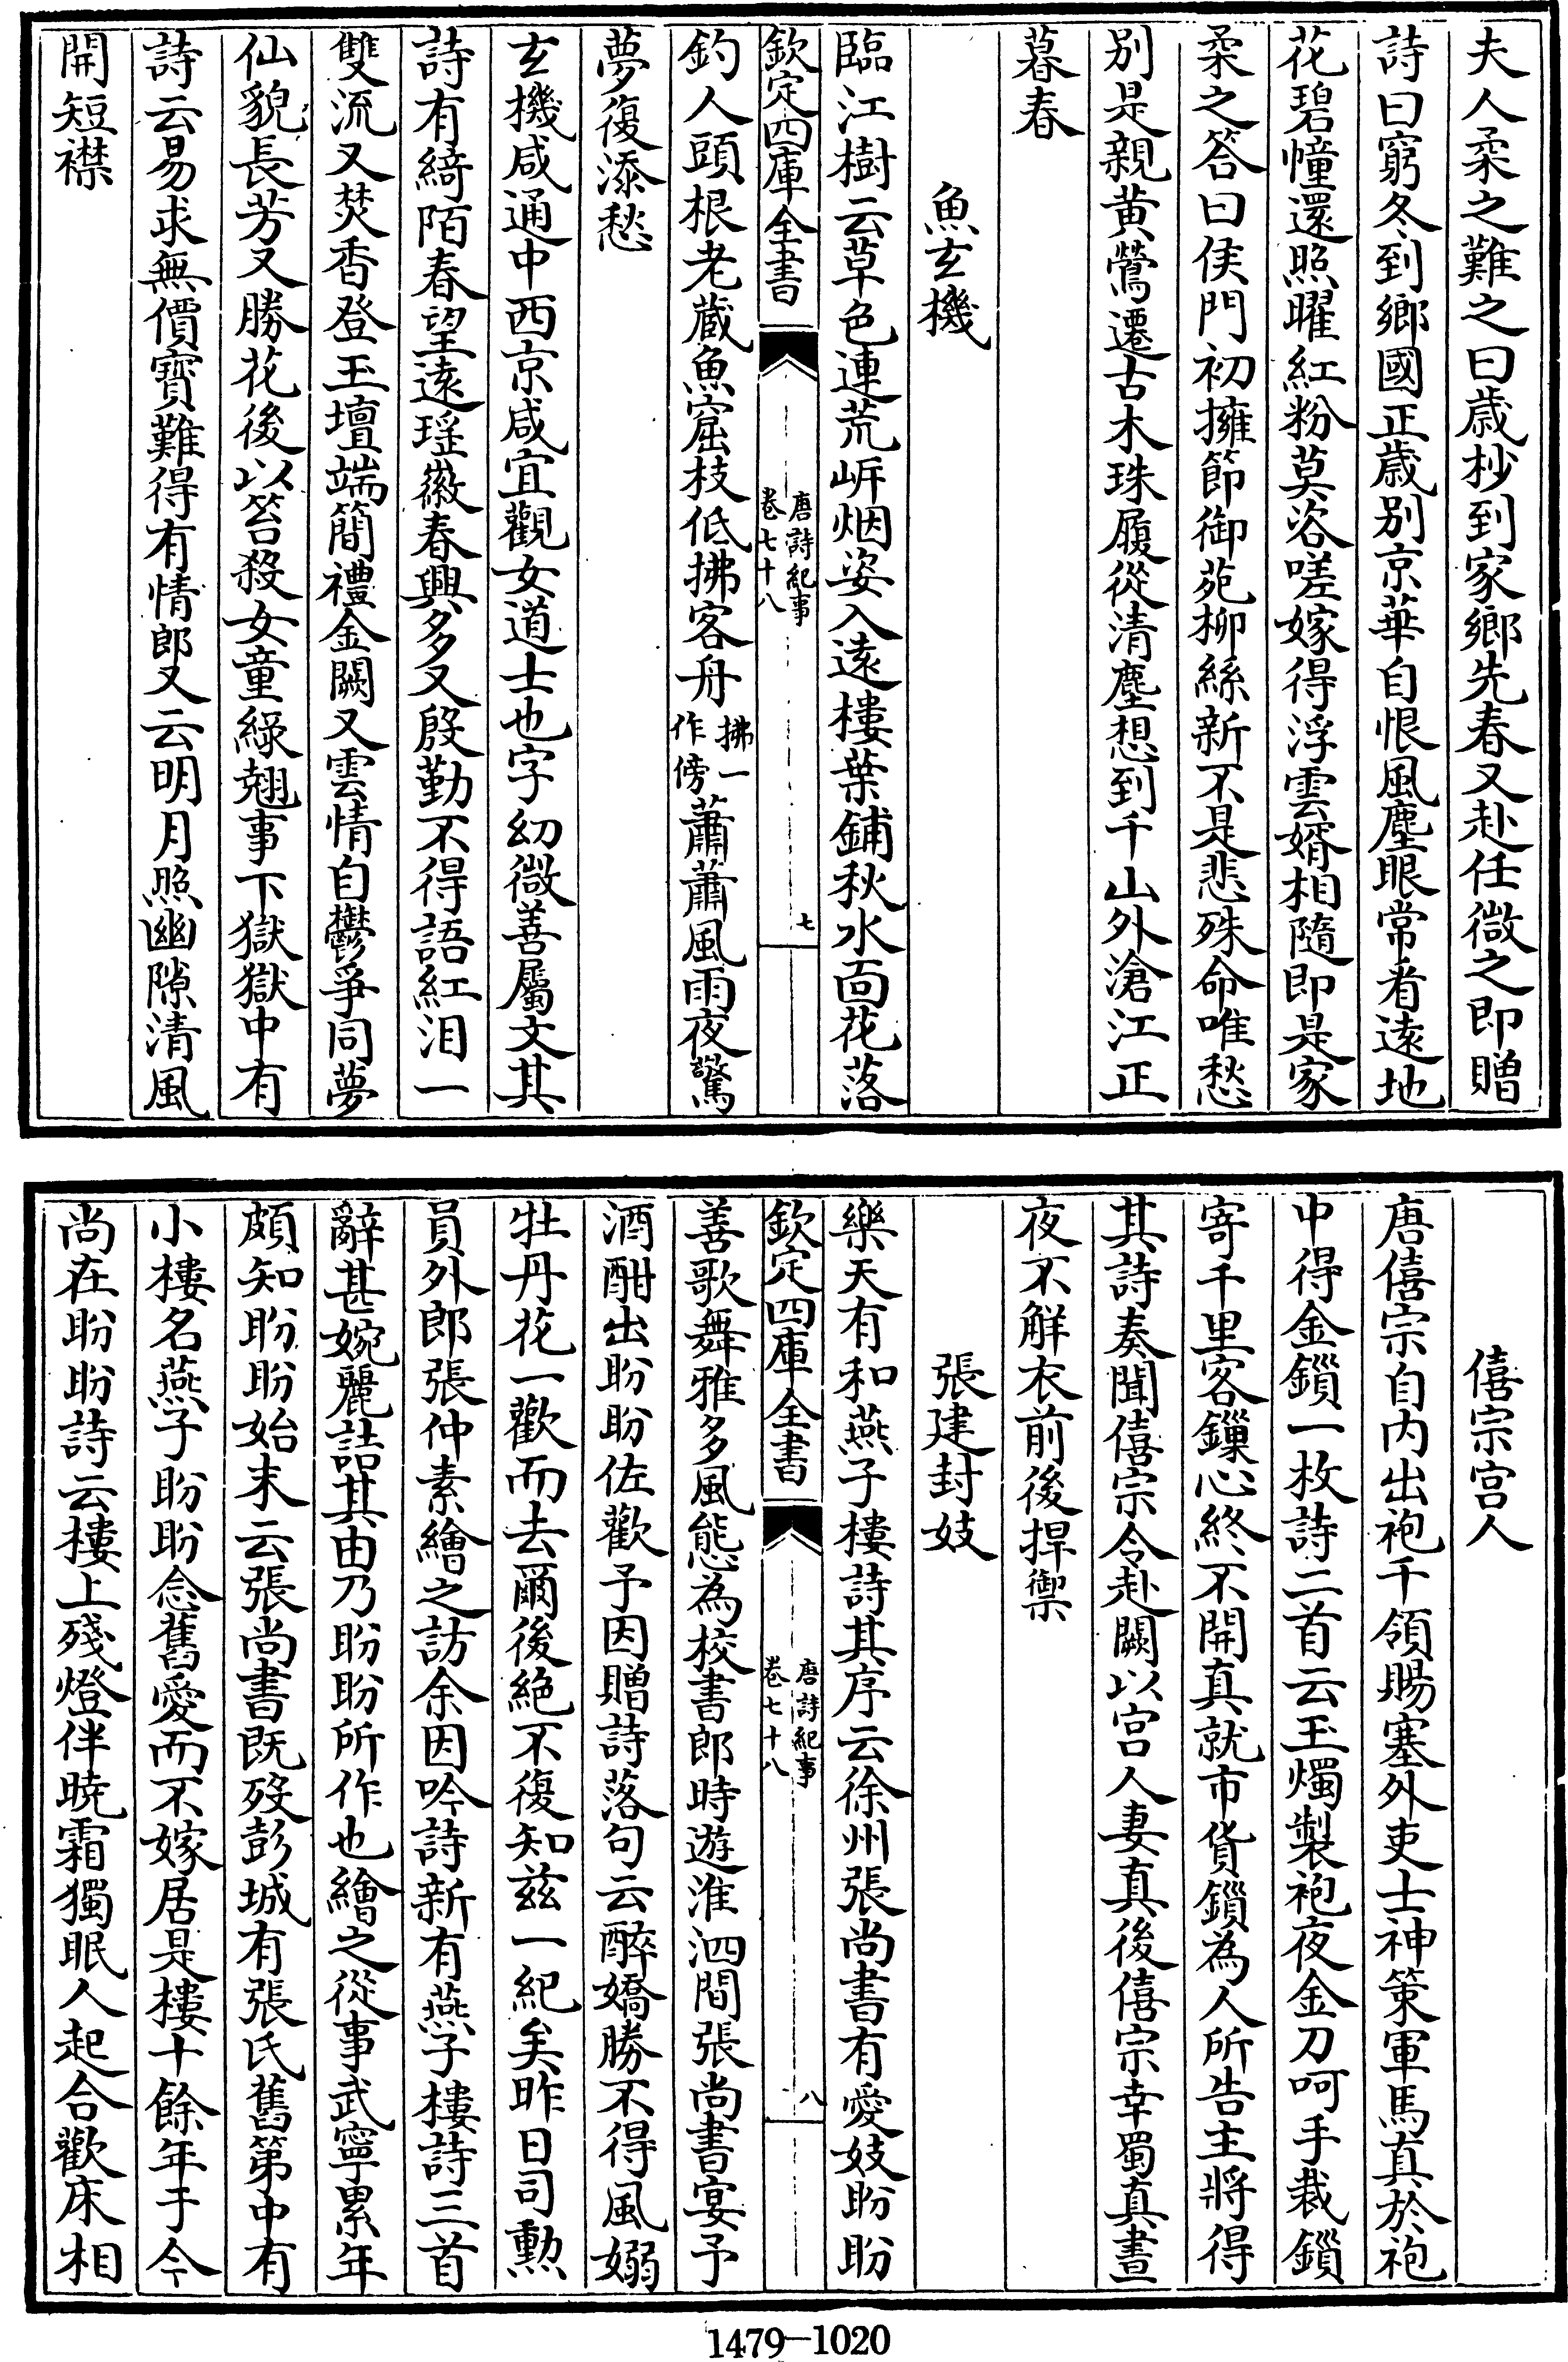 夫人柔之難之曰歳杪到家鄉先春又赴任微之即贈
詩曰窮冬到鄉國正歳别京華自恨風塵眼常看逺地
花碧幢還照曜紅粉莫咨嗟嫁得浮雲婿相隨即是家
柔之答曰侯門初擁節御苑柳絲新不是悲殊命唯愁
别是親黄鶯遷古木珠履從清塵想到千山外滄江正
暮春
魚玄機
臨江樹云草色連荒岸烟姿入逺樓葉鋪秋水面花落
欽定四庫全書
唐詩紀事
卷七十八
七
釣人頭根老蔵魚窟枝低拂客舟拂一作傍蕭蕭風雨夜驚
夢復添愁
玄機咸通中西京咸宜觀女道士也字幼微善屬文其
詩有綺陌春望逺瑶徽春興多又殷勤不得語紅泪一
雙流又焚香登玉壇端簡禮金闕又雲情自鬱爭同夢
仙貌長芳又勝花後以笞殺女童緑翹事下獄獄中有
詩云易求無價寶難得有情郎又云明月照幽隙清風
開短襟
僖宗宫人
唐僖宗自内出袍千領賜塞外吏士神策軍馬真於袍
中得金鎻一枚詩二首云玉燭製袍夜金刀呵手裁鎻
寄千里客鏁心終不開真就市貨鎻為人所告主將得
其詩奏聞僖宗令赴闕以宫人妻真後僖宗幸蜀真晝
夜不解衣前後捍禦
張建封妓
樂天有和燕子樓詩其序云徐州張尚書有愛妓盼盼
欽定四庫全書
唐詩紀事
卷七十八
八
善歌舞雅多風態為校書郎時遊淮泗間張尚書宴予
酒酣出盼盼佐歡予因贈詩落句云醉嬌勝不得風嫋
牡丹花一歡而去爾後絶不復知兹一紀矣昨日司勲
員外郎張仲素繪之訪余因吟詩新有燕子樓詩三首
辭甚婉麗詰其由乃盼盼所作也繪之從事武寧累年
頗知盼盼始末云張尚書既歿彭城有張氏舊第中有
小樓名燕子盼盼念舊愛而不嫁居是樓十餘年于今
尚在盼盼詩云樓上殘燈伴曉霜獨眠人起合歡床相
1479-1020